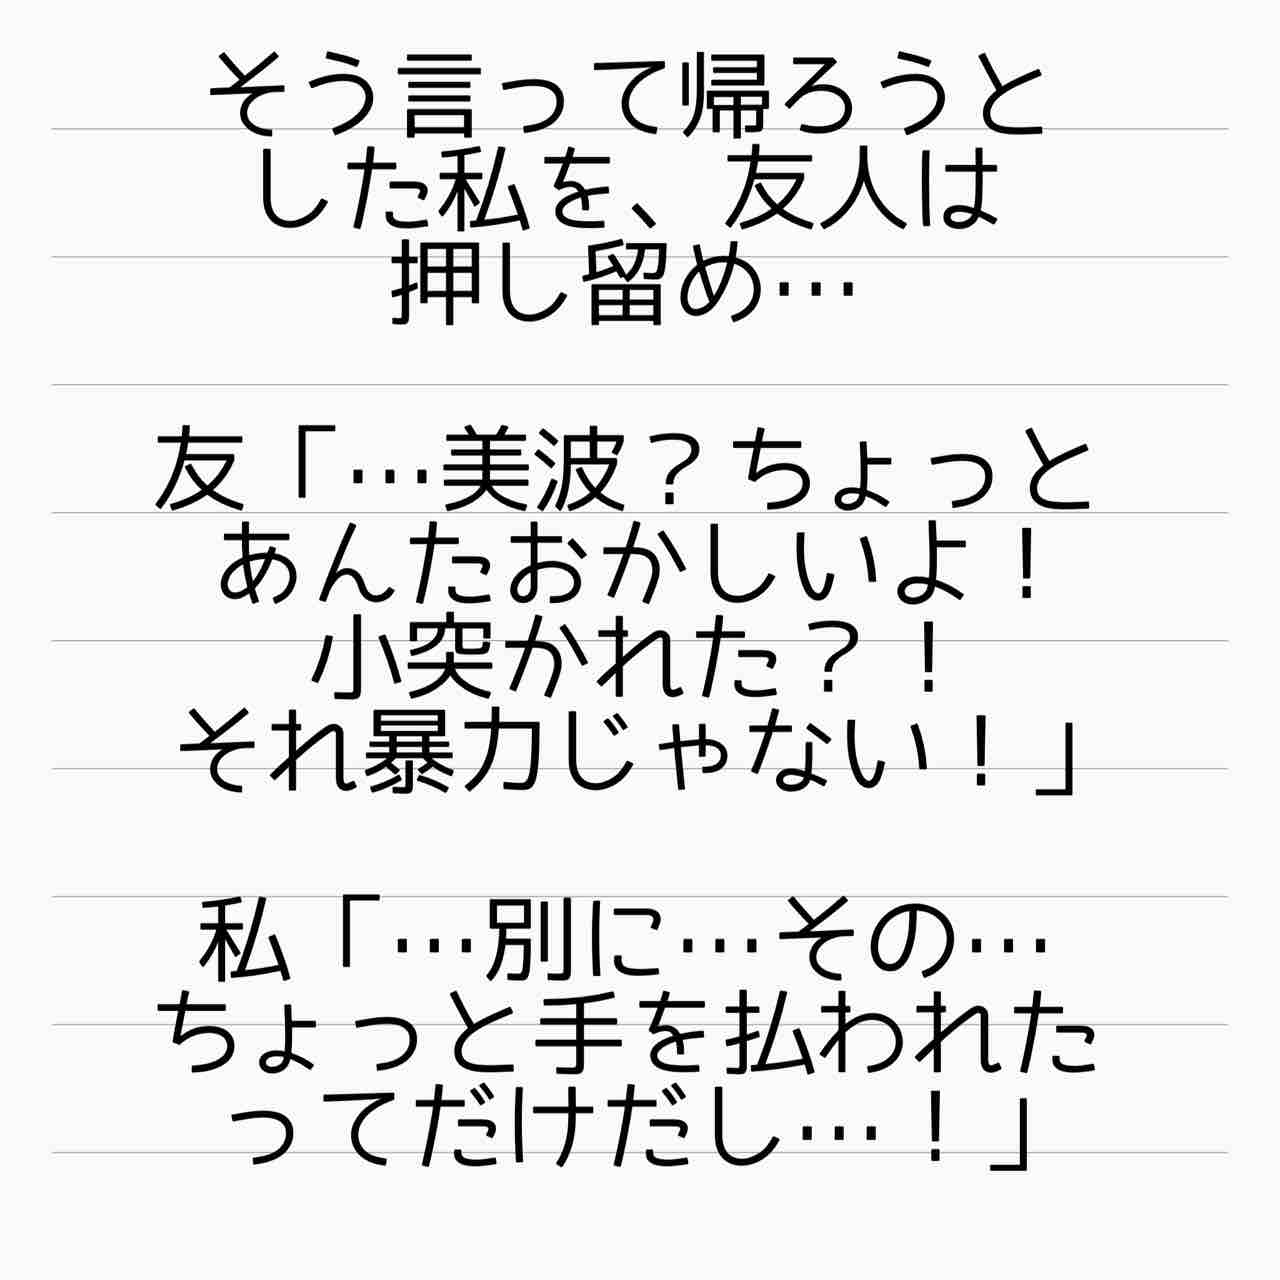 そう言って帰ろうと
した私を、友人は
押し留め…
友「…美波？ちょっと
あんたおかしいよ！
小突かれた？！
それ暴力じゃない！」
私「…別に…その…
ちょっと手を払われた
ってだけだし…！」